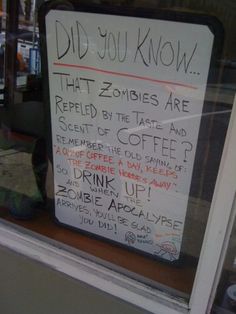 DID YOU KNOW...
THAT ZOMBIES ARE
REPELED BY THE TASTE AND
SCENT OF COFFEE?
REMEMBER THE OLD SAYING OF
"A CUP OF COFFEE A DAY, KEEPS
THE ZOMBIE HORDES AWAY"
SO DRINK UP!
AND WHEN THE
ZOMBIE APOCALYPSE
ARRIVES, YOU'LL BE GLAD
YOU DID!